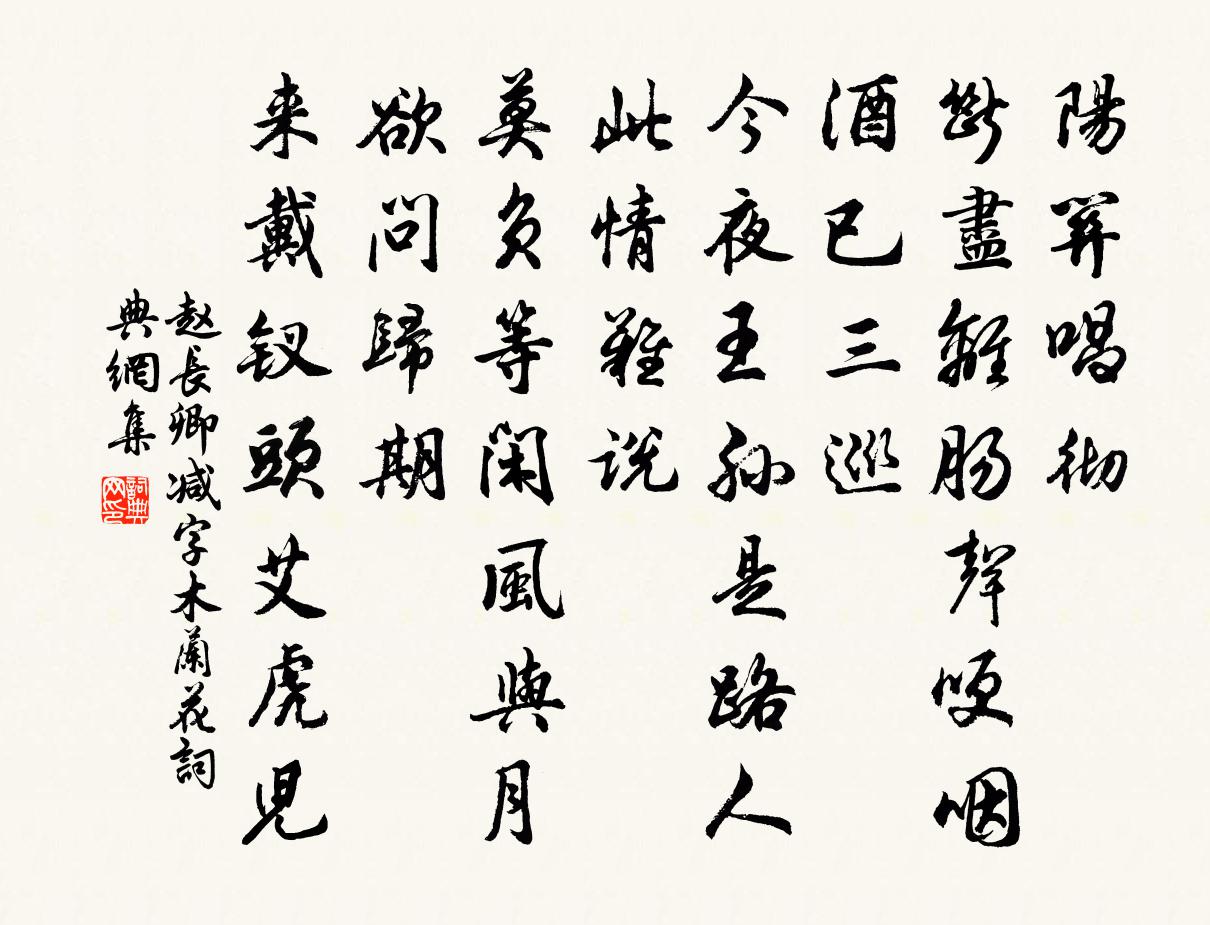 陽關唱徹
斷盡離腸聲哽咽
酒已三巡
今夜王孫是路人
此情難說
莫負等閑風與月
欲問歸期
来戴釵頭艾虎兒
赵長卿减字木蘭花詞
典網集
詞典网印